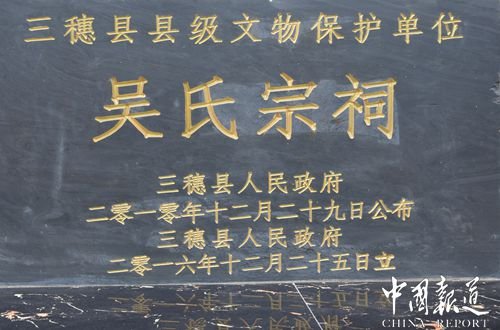 三穗县县级文物保护单位
吴氏宗祠
三穗县人民政府
二零一零年十二月二十九日公布
三穗县人民政府
二零一六年十二月二十五日立
中國報道
CHINA REPORT